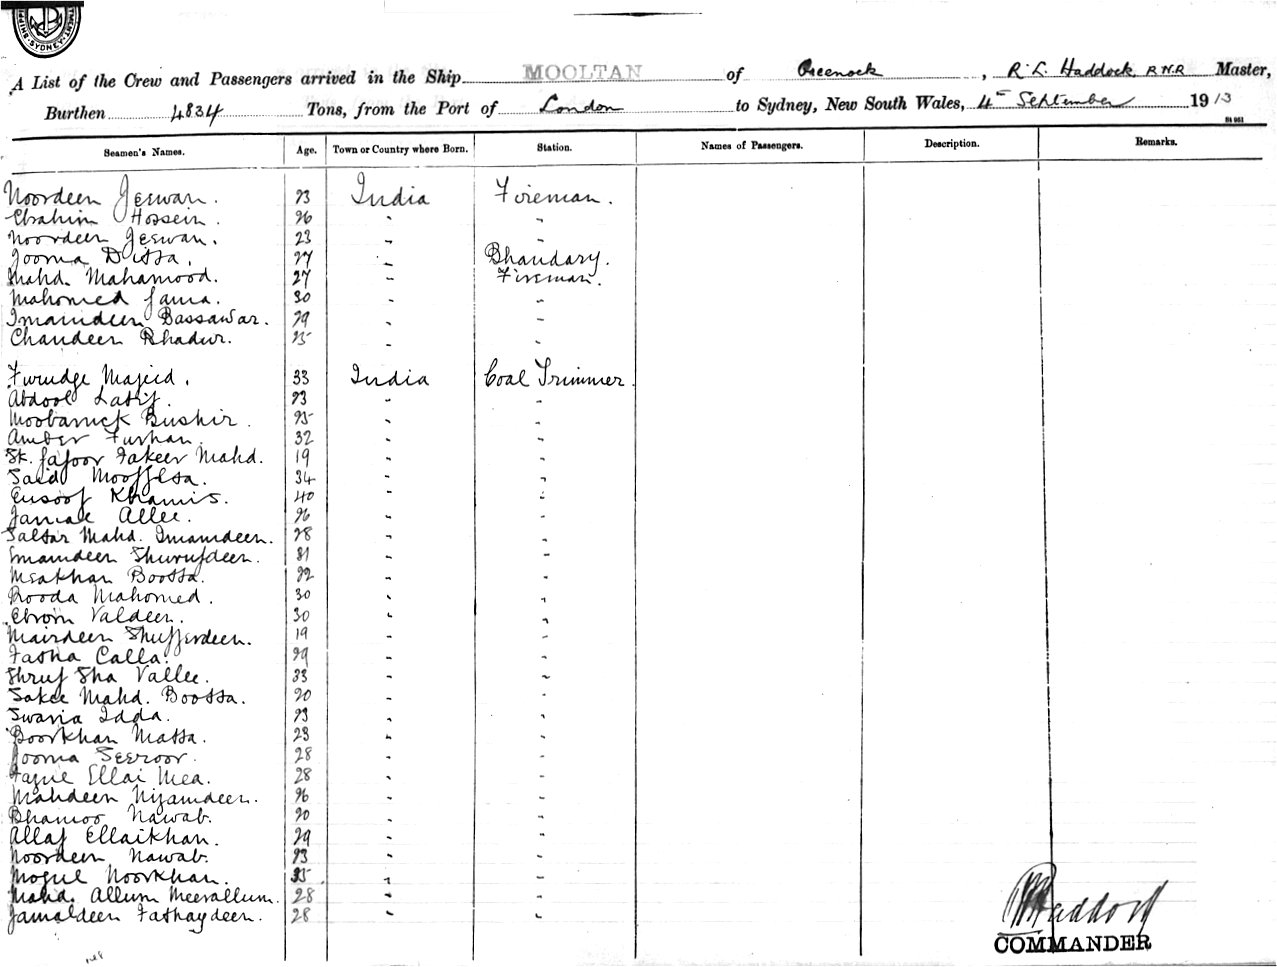 SYDNEY
A List of the Crew and Passengers arrived in the Ship MOOLTAN of Greenock, R. L. Haddock, R.N.R Master,
Burthen 4834 Tons, from the Port of London to Sydney, New South Wales, 4th September 1913
Seamen's Names. Age. Town or Country where Born. Station. Names of Passengers. Description. Remarks.
Noordeen Jeswan. 23 India Fireman.
Ebrahim Hossein. 26 " "
Noordeen Jeswan. 23 " "
Jooma Ditta. 27 " Bhandary.
Mahd. Mahamood. 27 " Fireman.
Mahomed Jama. 30 " "
Imamdeen Bassawar. 29 " "
Chandeen Bhadur. 25 " "
Majeed. 33 India Coal Trimmer.
Abdool Latif. 23 " "
Moobarruck Bushir. 25 " "
Amber Furhan. 32 " "
Sk. Jafoor Fakeer Mahd. 19 " "
Said 34 " "
Eusoof Khamis. 40 " "
Allee. 26 " "
Mahd. Imamdeen. 28 " "
Emamdeen Shurufdeen. 31 " "
Meakhan Bootta. 22 " "
Rooda Mahomed. 30 " "
Valdeen. 30 " "
Mairdeen Shufferdeen. 19 " "
Fatha Calla. 29 " "
Shruf Sha Vallee. 33 " "
Sakee Mahd. Bootta. 20 " "
Swaria Idda. 23 " "
Boorkhan Matta. 23 " "
Jooma Seeroor. 28 " "
Ellai Mea. 28 " "
Mahdeen Nijamdeen. 26 " "
Bhamoo Nawab. 20 " "
Allaf Ellaikhan. 29 " "
Noordeen Nawab. 23 " "
Mogul Noorkhan. 35 " "
Mahd. Allum Meerallum. 28 " "
Jamaldeen Fathaydeen. 28 " "
Haddock
COMMANDER